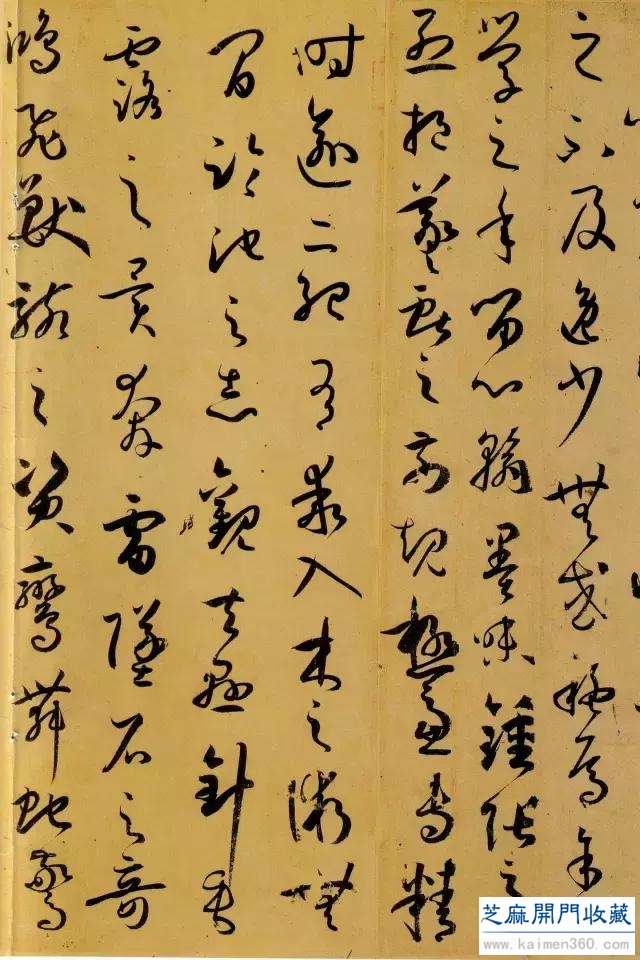 之不及逸少無或疑焉余
學之年留心翰墨味鍾張之
烈挹羲獻之前規極慮專精
時逾二紀有乖入木之術無
間臨池之志觀夫懸針垂
露之異奔雷墜石之奇
鴻飛獸駭之資鸞舞蛇驚
芝麻開門收藏
www.kaimen360.com